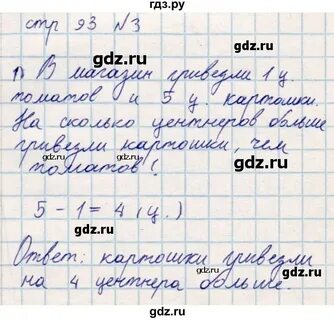 гдз.ру
стр 93 №3
gdz.ru
1) В магазин привезли 1 ц
томатов и 5 ц. картошки.
На сколько центнеров больше
привезли картошки, чем
томатов?
5 - 1 = 4 (ц.)
Ответ: картошки привезли
на 4 центнера больше.
gdz.ru